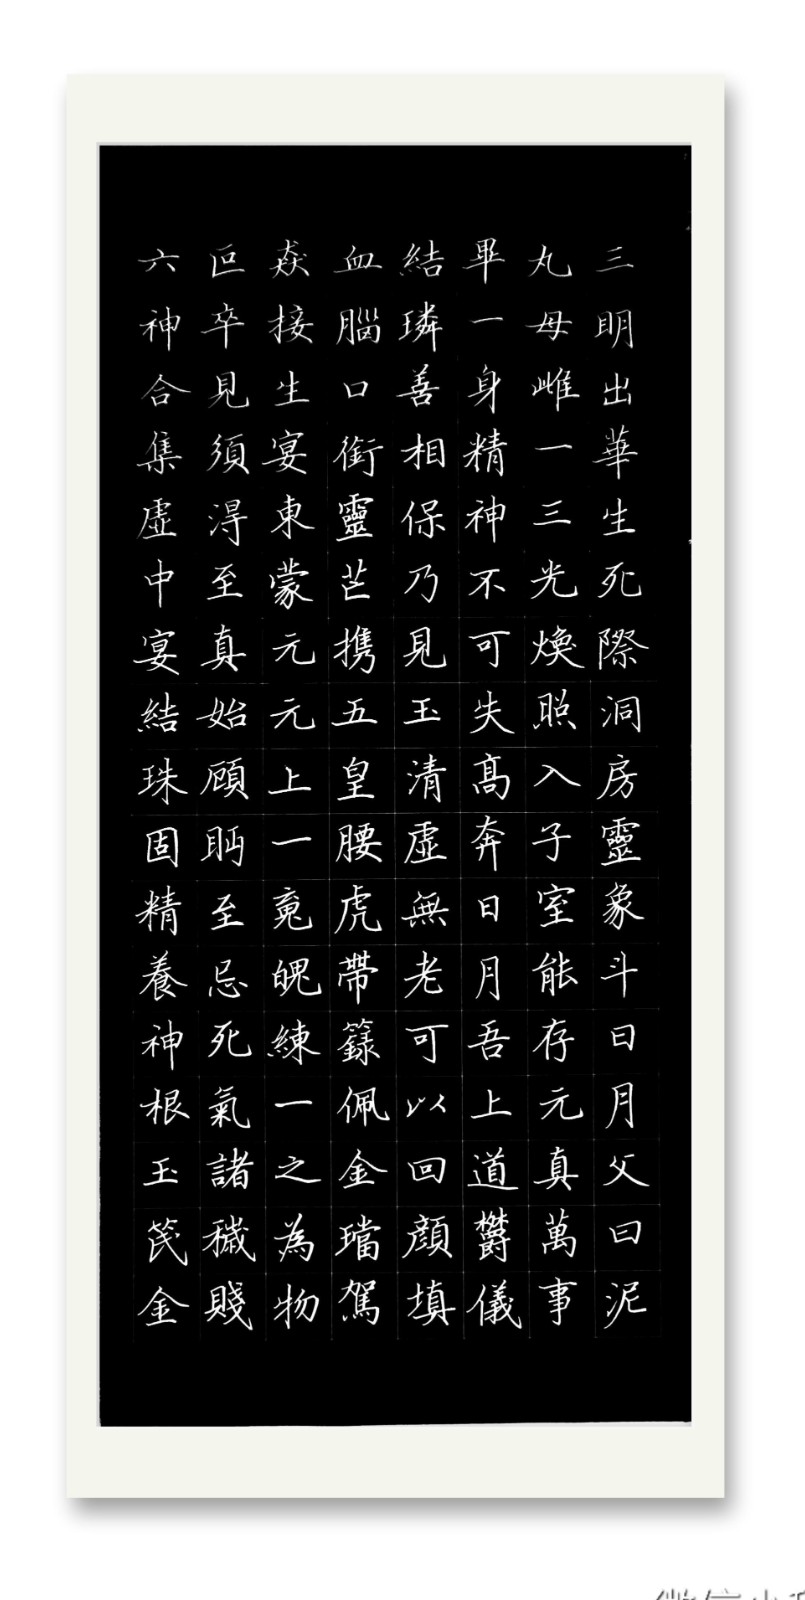 三明出華生死際洞房靈象斗日月父曰泥
丸母雌一三光煥照入子室能存元真萬事
畢一身精神不可失高奔日月吾上道鬱儀
結璘善相保乃見玉清虛無老可以回顏填
血腦口銜靈芒携五皇腰虎帶籙佩金璫駕
焱接生宴東蒙元元上一魂魄練一之為物
叵卒見須得至真始顧眄至忌死氣諸穢賤
六神合集虛中宴結珠固精養神根玉笢金